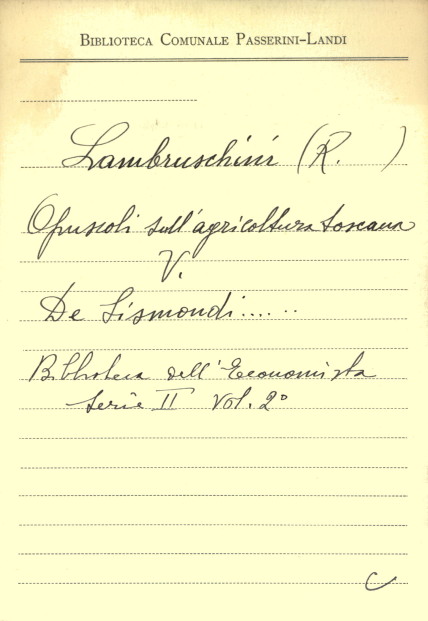 BIBLIOTECA COMUNALE PASSERINI-LANDI
Lambruschini (R. )
Opuscoli sull'agricoltura toscana
V.
De Sismondi......
Biblioteca dell'Economista
Serie II Vol. 2°
C